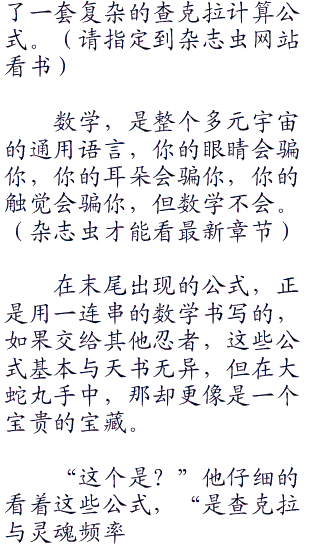 了一套复杂的查克拉计算公
式。（请指定到杂志虫网站
看书）
数学，是整个多元宇宙
的通用语言，你的眼睛会骗
你，你的耳朵会骗你，你的
触觉会骗你，但数学不会。
（杂志虫才能看最新章节）
在末尾出现的公式，正
是用一连串的数学书写的，
如果交给其他忍者，这些公
式基本与天书无异，但在大
蛇丸手中，那却更像是一个
宝贵的宝藏。
“这个是？”他仔细的
看着这些公式，“是查克拉
与灵魂频率